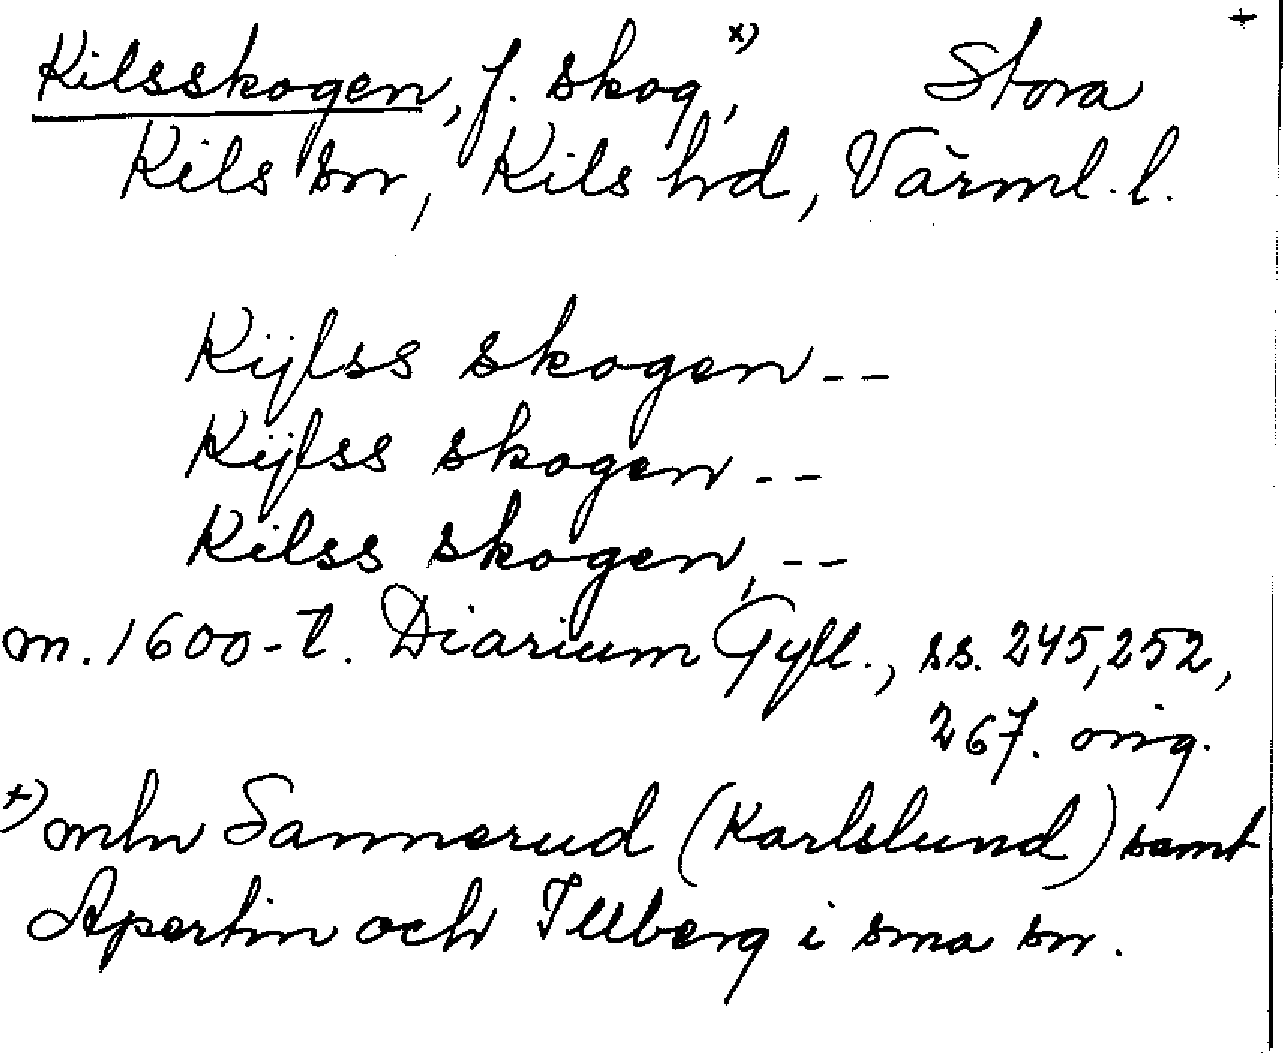 +
Kilsskogen, f. skog,x) Stora
Kils sn, Kils hd, Värml. l.
Kijlss skogen --
Kijlss skogen --
Kilss skogen, --
m. 1600-t. Diarium Gyll., ss. 245, 252,
267. orig.
x) mln Sannerud (Karlslund) samt
Apertin och Illberg i sma sn.